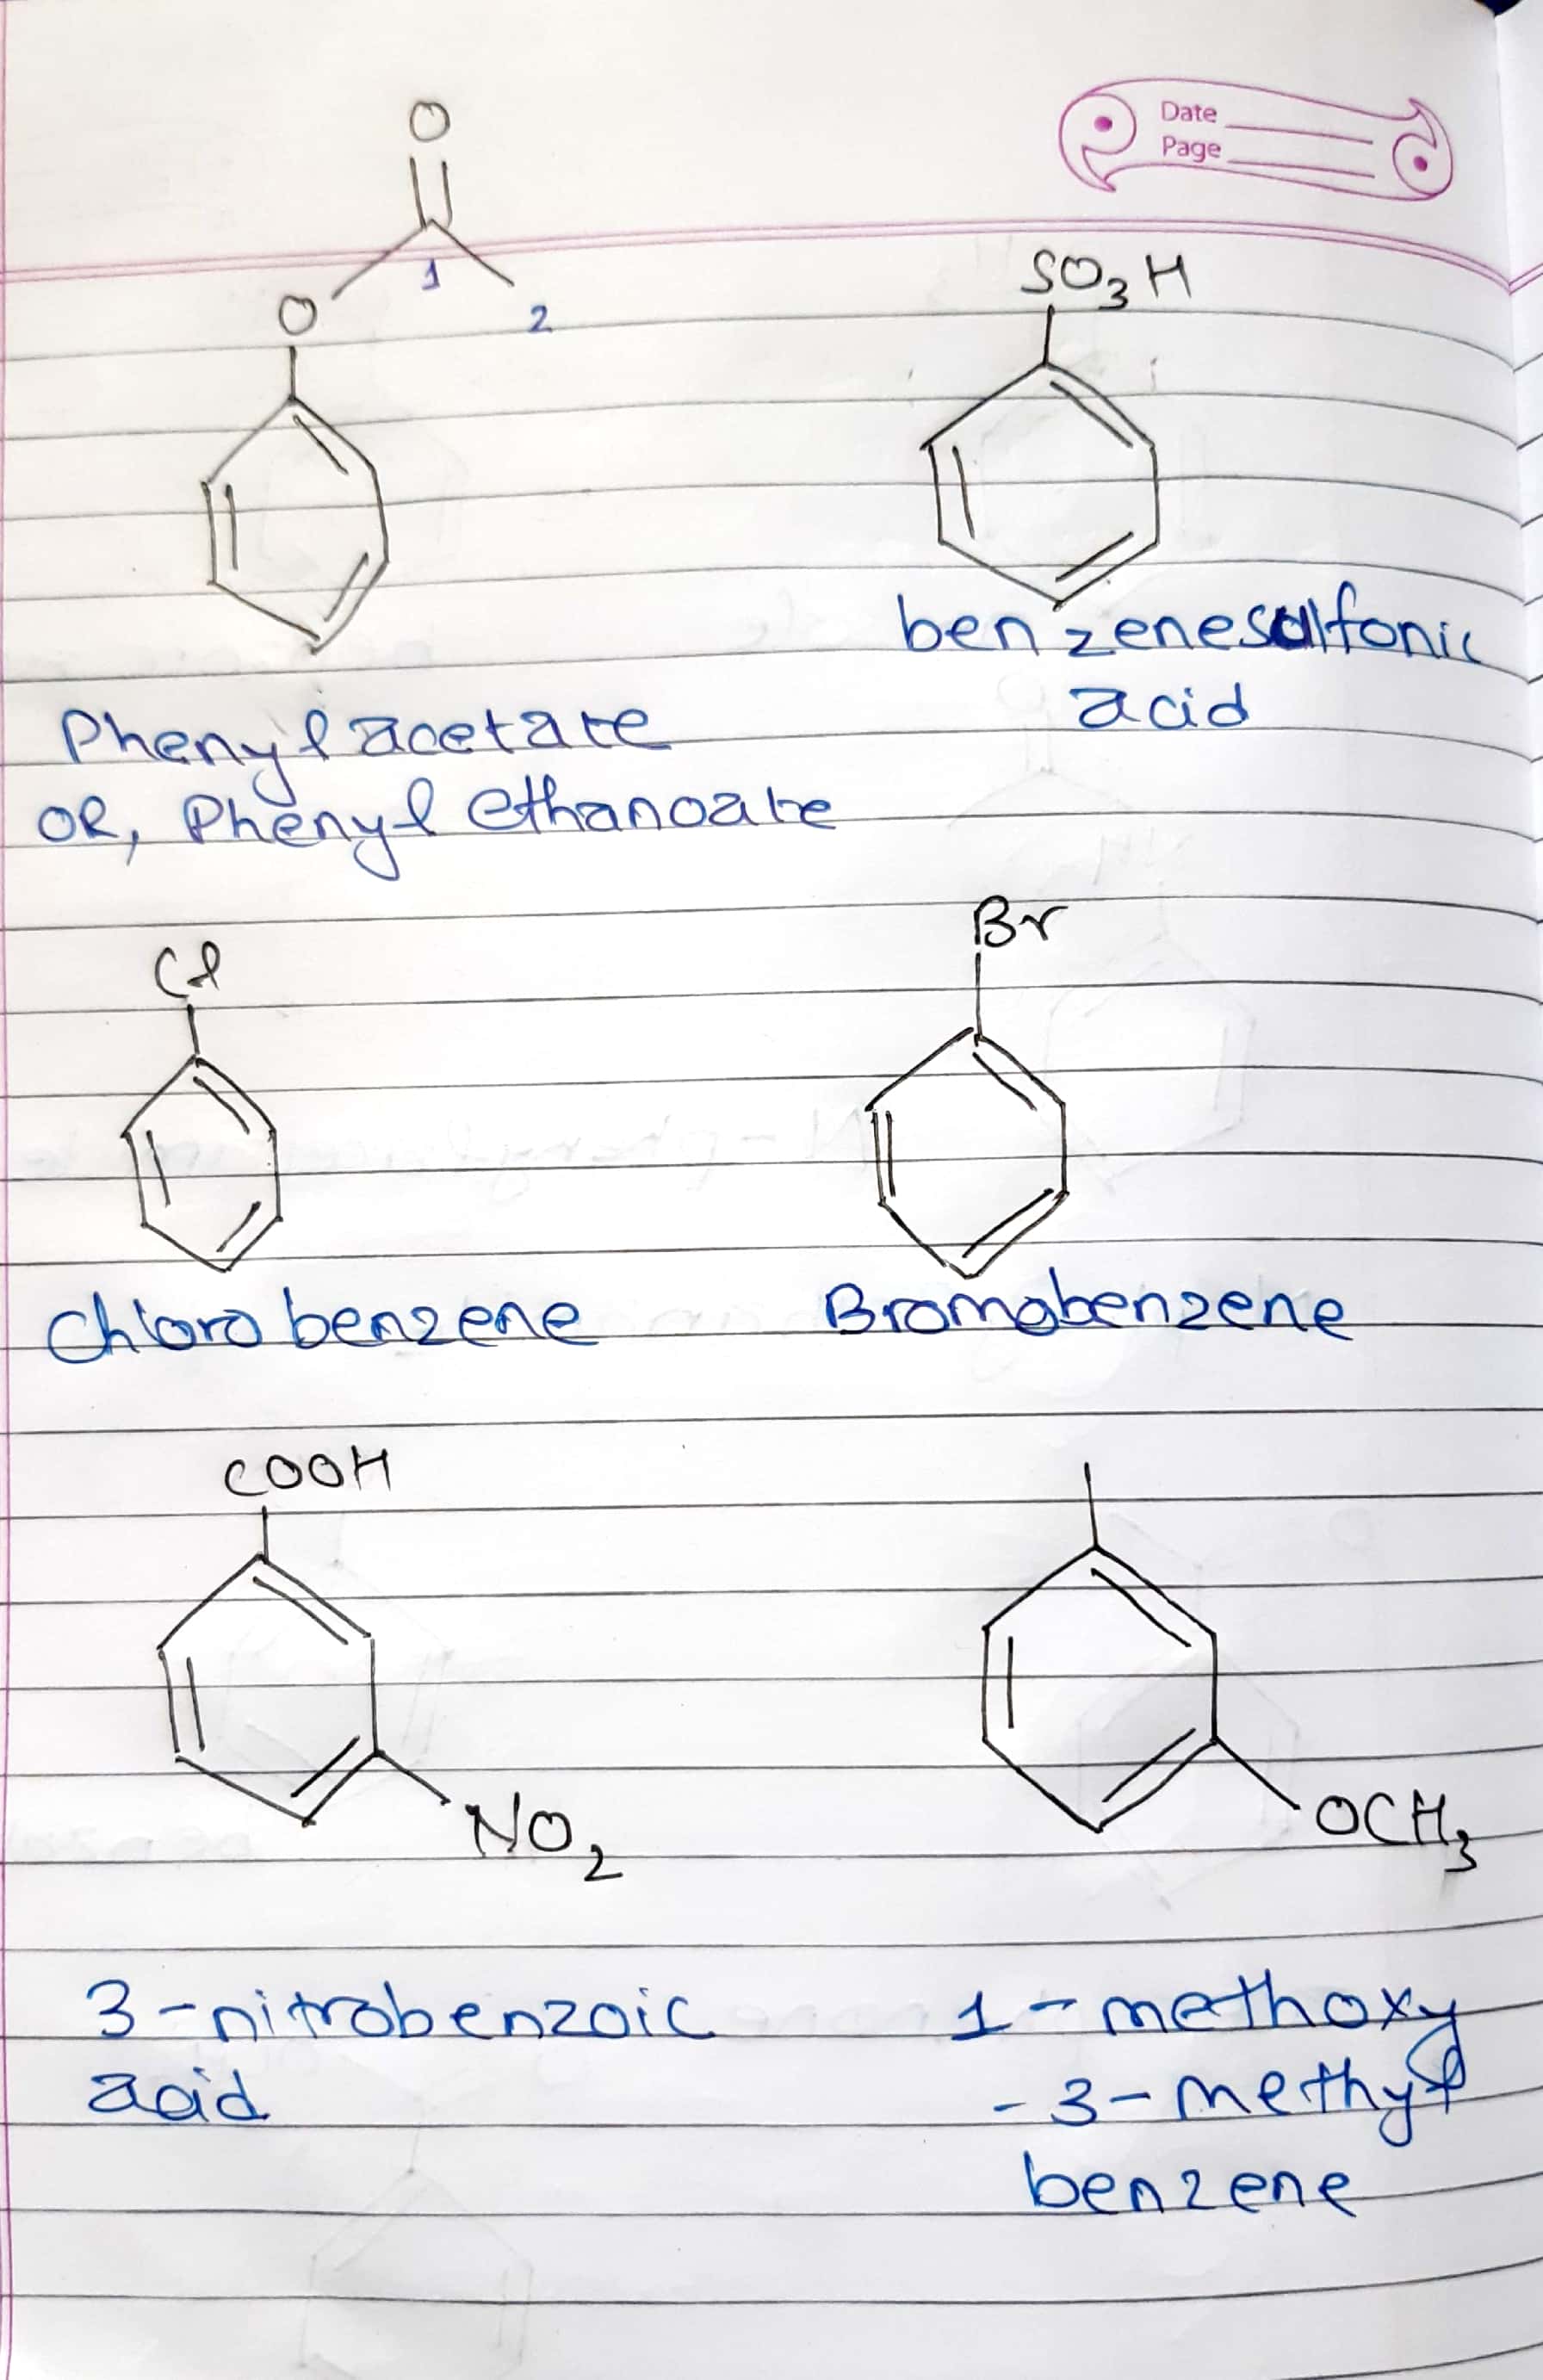 Date
Page
O
O
1
2
SO₃H
benzenesulfonic
acid
Phenyl acetate
OR, Phenyl ethanoate
Cl
Br
Chlorobenzene
Bromobenzene
COOH
NO₂
OCH₃
3-nitrobenzoic
acid
1-methoxy
-3-methyl
benzene